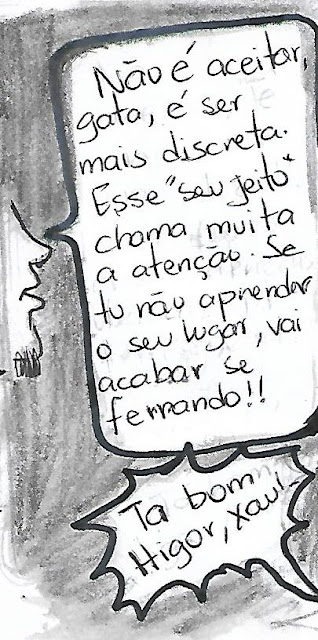 Não é aceitar,
gata, é ser
mais discreta.
Esse "seu jeito"
chama muita
a atenção. Se
tu não aprender
o seu lugar, vai
acabar se
ferrando!!
Ta bom
Higor, xau!